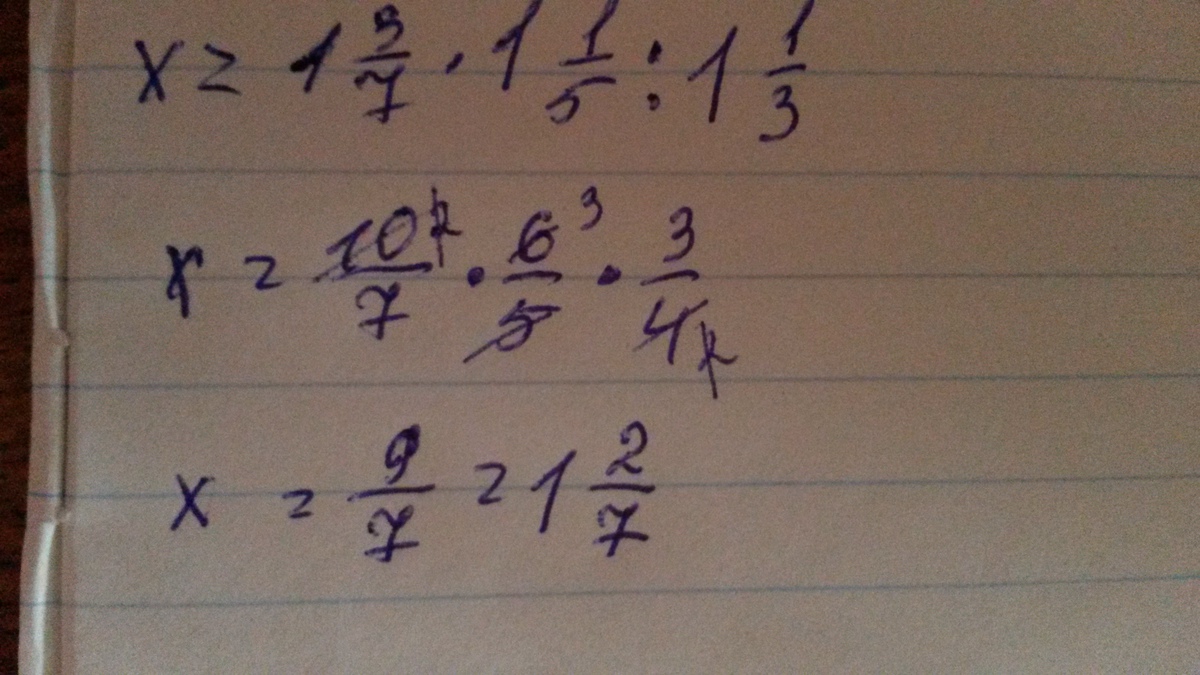 x = 1 3/7 · 1 1/5 : 1 1/3
x = 10 2/7 · 6 3/5 · 3/4 2
x = 9/7 = 1 2/7